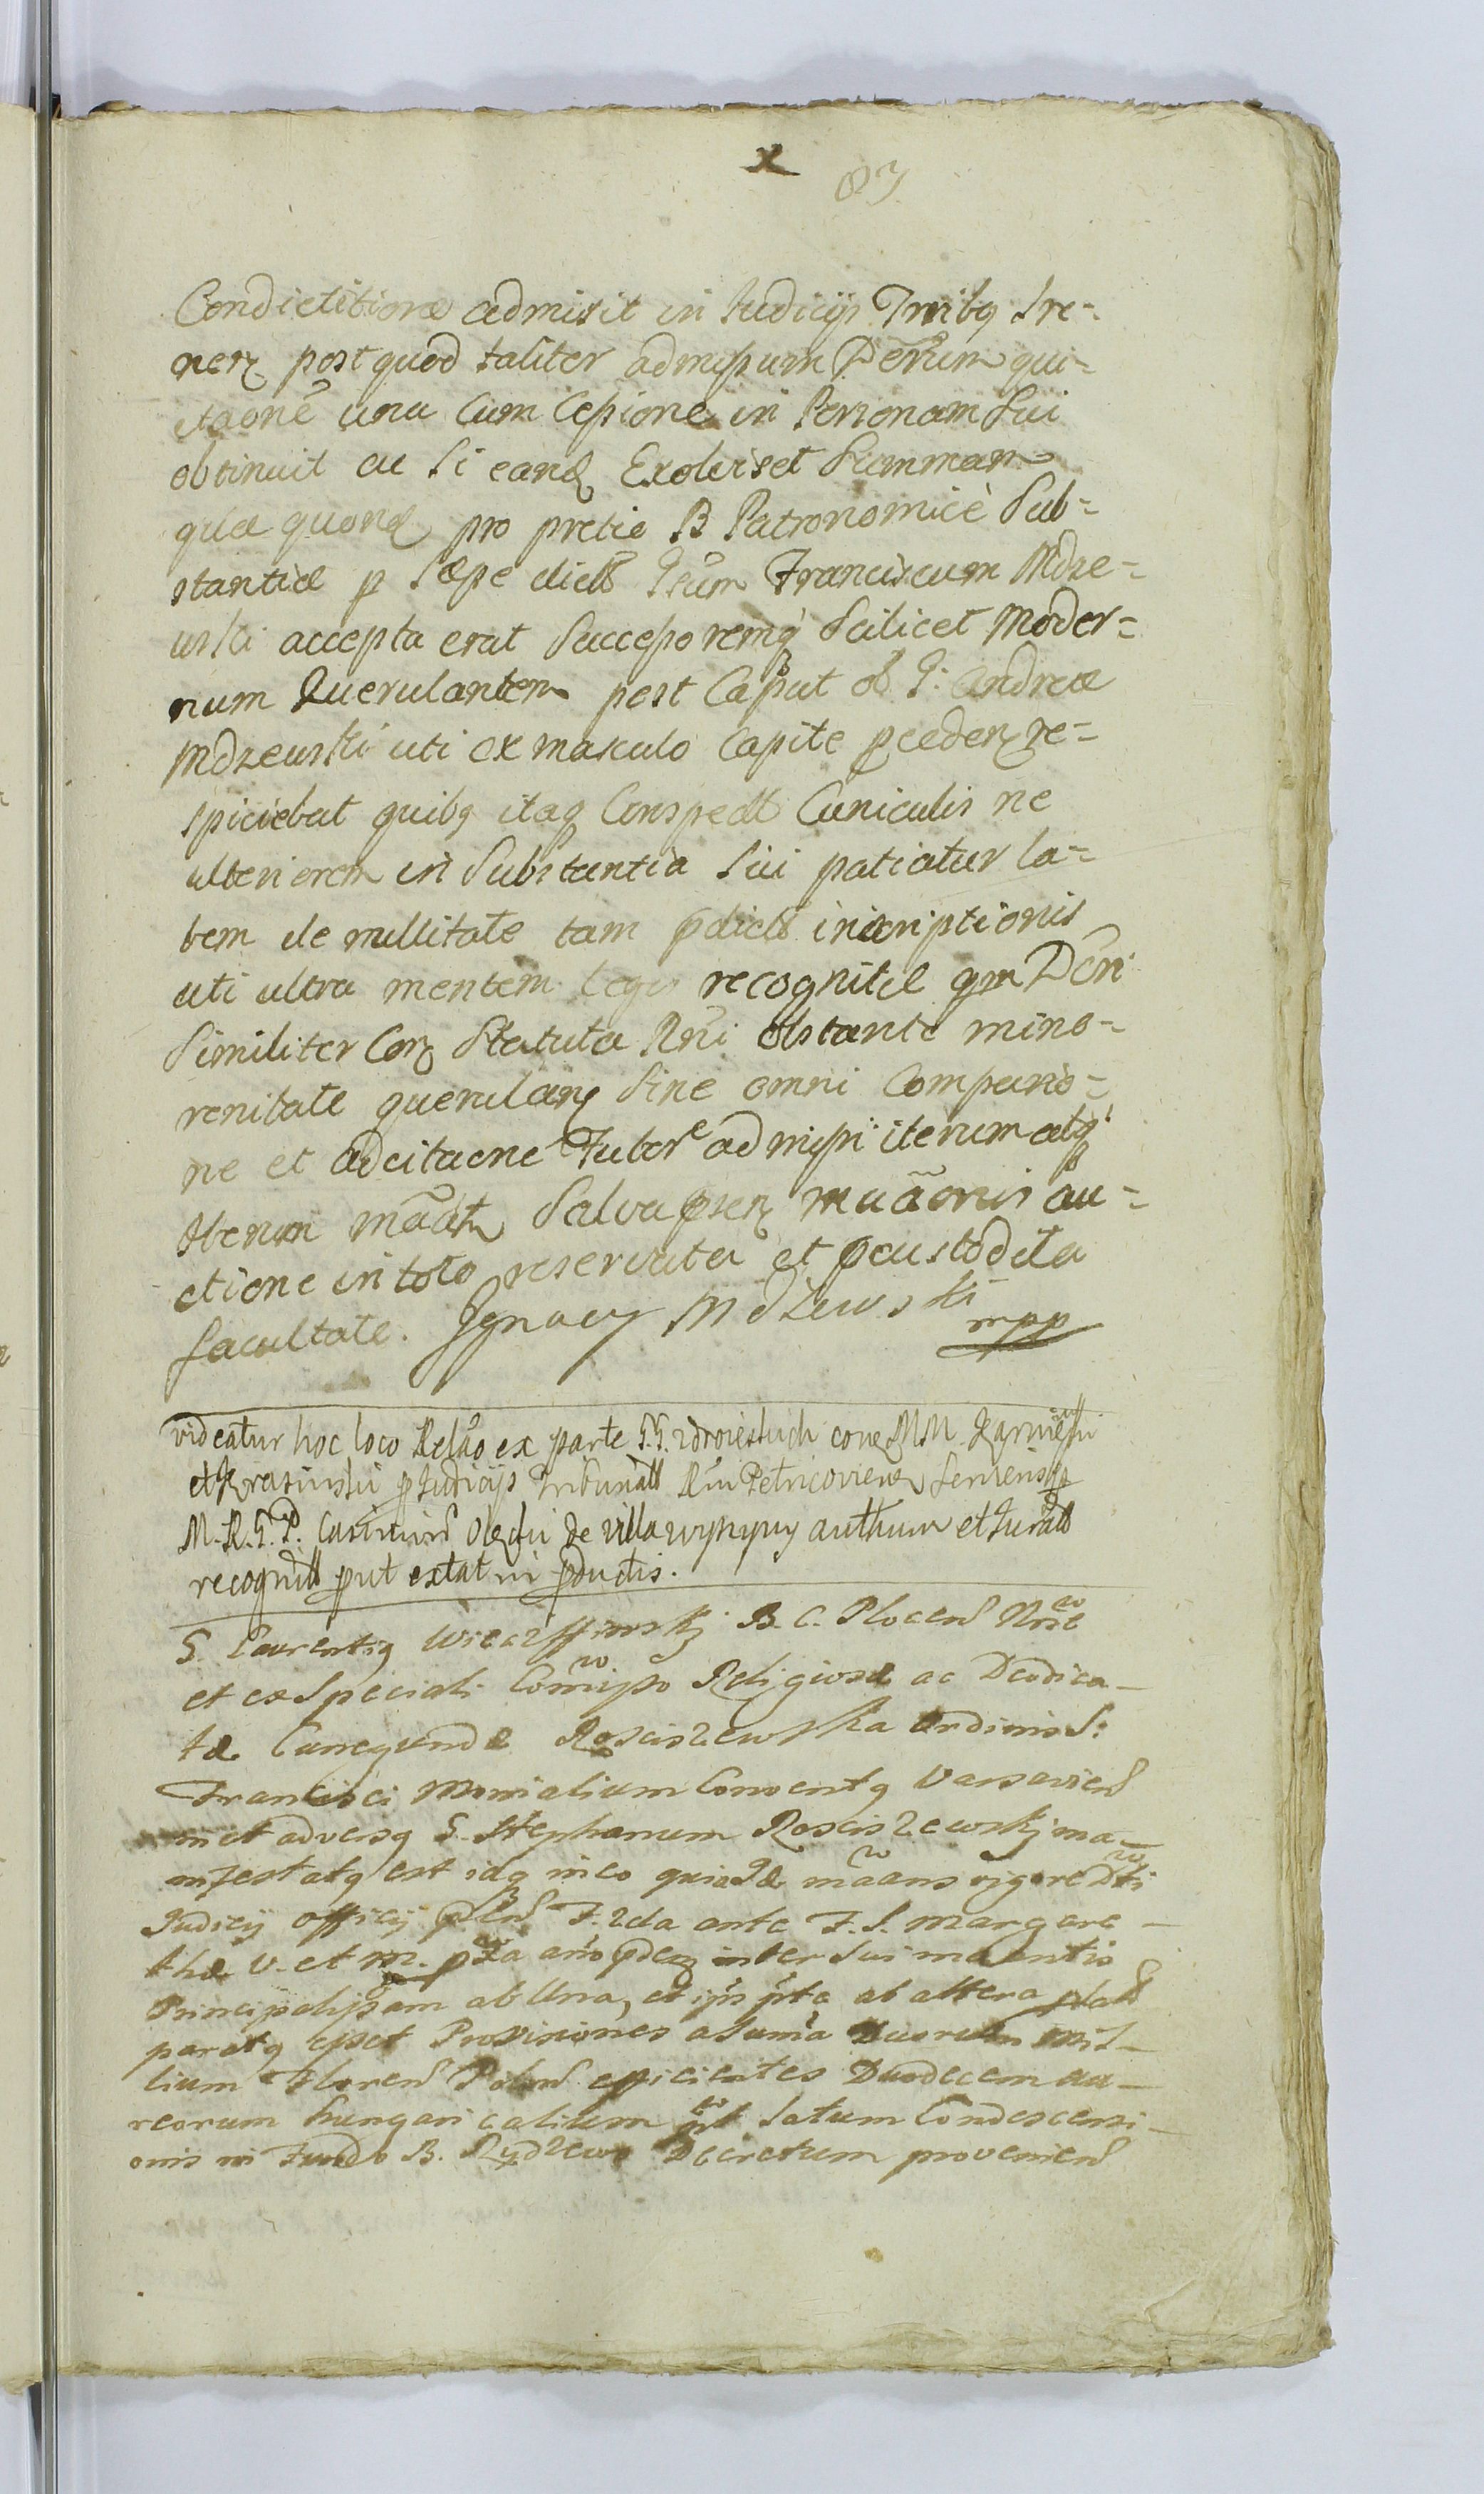 x 83
Condictitionæ admisit in Iudicijs Tertibq Tre-
nerz post quod taliter admissum Decrum qui-
etaone una Cum Cessione in Personam Sui
obtinuit ac Si eand Exolvisset Summam
quæ quond pro pretio B Patronomice Sub-
stantiæ p Sæpe dict Gsum Franciscum Mdze-
wski accepta erat Successoremq Scilicet Moder-
num Querulantem post Caput ol G: Andreæ
Mdzewski uti ex masculo Capite pcedenz re-
spiciebat quibq itaq Conspect Cuniculis ne
ulteriorem in Substantia Sui patiatur la-
bem de nullitate tam pdict inscriptionis
uti ultra mentem legis recognitæ qm Decri
Similiter Conz Statuta Rni obstante mino-
renitate querulanz Sine omni Comparitio-
ne et adcitaone Tutore admissi iterum atq
iterum maatr Salva psenz maaonis au-
ctione in toto reservata et pcustodita
facultate. Jgnacy Mdzewski
mpp
videatur hoc loco Relao ex parte G.G. zdroiewskich conz MM. Karnieski
et Krasinski p Iudicijs Tribunall Rni Petricovien Serviens p
M. R. G. P. Casimirus Oleski de villa wypychy authum et Iurat
recognitt put extat in pductis.
G. Laurentiq Wieczffinskj B. C. Plocens Nrie
et ex Speciali Comisso Religiosæ ac Deodica-
tæ Cunegundæ Rosciszewska Ordinis S:
Francisci Monialium Conventq Varsaviens
in et adversq G. Stephanum Rosciszewskj ma-
nifestatq est idq in eo quia Idæ maans rigore Dti
Iudicij officij pSens F. 2da ante F. S. Margare-
thæ V. et M. pta ano pdez inter Sui maentis
Principalissam ab Una, et ipse pta ab altera plats
paratq esset Provisiones a Suma Duorum Mil-
lium Floren Polon efficientes Duodecem au-
reorum hungaricalium put latum Condescensi-
onis in Fundo B. Rydzewo Decretum proveniens